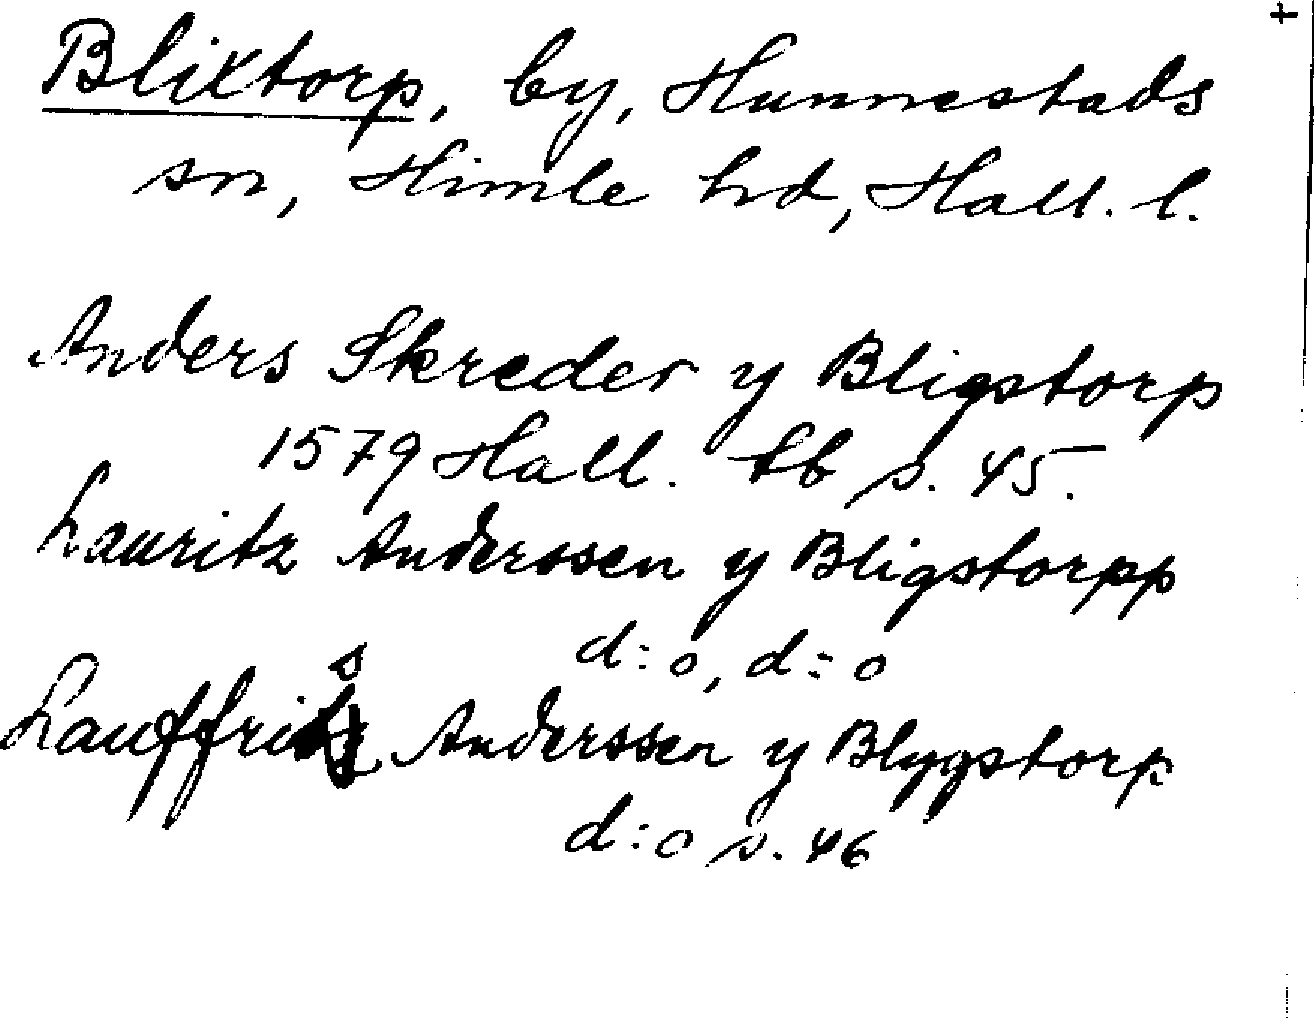 Blixtorp, by, Hunnestads
sn, Himle hd, Hall. l.
Anders Skreder y Bligstorp
1579 Hall. tb s. 45.
Lauritz Anderssen y Bligstorpp
d:o, d:o
Anderssen y Blygstorp
d:o s. 46